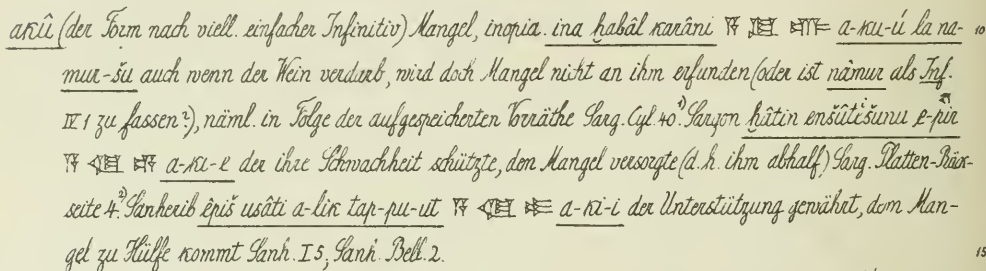 akû (der Form nach viell. einfacher Infinitiv) Mangel, inopia. ina ḫabâl karâni 𒀀 𒆪 𒌑 a-ku-ú la na- 10
mur-šu auch wenn der Wein verdarb, wird doch Mangel nicht an ihm erfunden (oder ist nâmur als Inf.
IV 1 zu fassen?), näml. in Folge der aufgespeicherten Vorräthe Sarg. Cyl. 40.¹⁾ Sargon ḫâtin enšûtišunu e-pir
𒀀 𒆠 𒂊 a-ki-e der ihre Schwachheit schützte, den Mangel versorgte (d. h. ihm abhalf) Sarg. Platten-Rück-
seite 4.²⁾ Sanherib êpiš usâti a-lik tap-pu-ut 𒀀 𒆠 𒄿 a-ki-i der Unterstützung gewährt, dem Man-
gel zu Hülfe kommt Sanh. I 5; Sanh. Bell. 2. 15